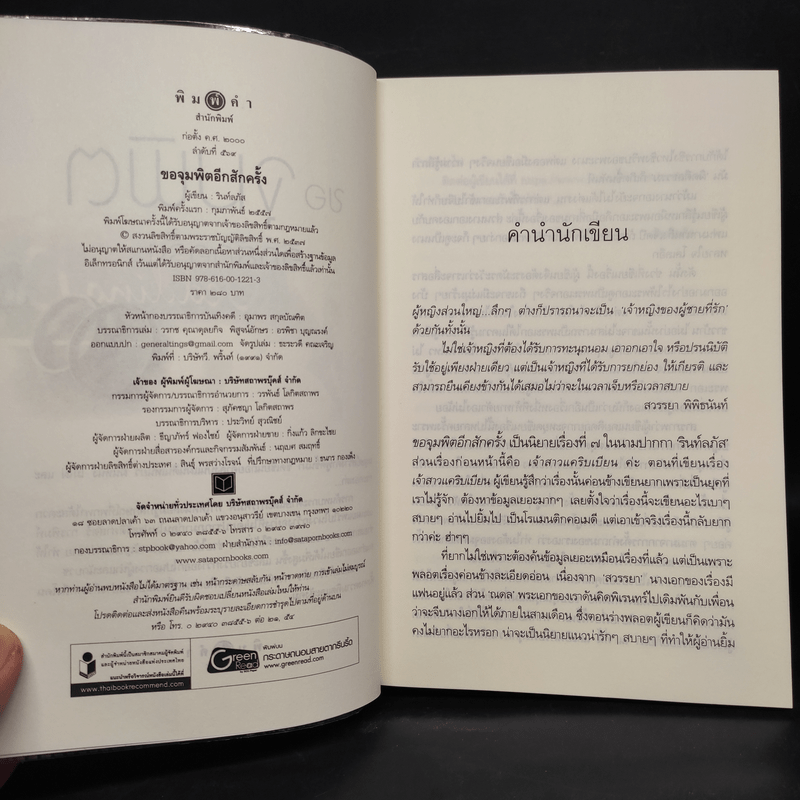 พิม พ์ คำ
สำนักพิมพ์
ก่อตั้ง ค.ศ. ๒๐๐๐
ลำดับที่ ๕๖๙
ขอจุมพิตอีกสักครั้ง
ผู้เขียน : รินท์ลภัส
พิมพ์ครั้งแรก : กุมภาพันธ์ ๒๕๕๗
พิมพ์โฆษณาครั้งนี้ได้รับอนุญาตจากเจ้าของลิขสิทธิ์ตามกฎหมายแล้ว
© สงวนลิขสิทธิ์ตามพระราชบัญญัติลิขสิทธิ์ พ.ศ. ๒๕๓๗
ไม่อนุญาตให้สแกนหนังสือ หรือคัดลอกเนื้อหาส่วนหนึ่งส่วนใดเพื่อสร้างฐานข้อมูล
อิเล็กทรอนิกส์ เว้นแต่ได้รับอนุญาตจากสำนักพิมพ์และเจ้าของลิขสิทธิ์แล้วเท่านั้น
ISBN 978-616-00-1221-3
ราคา ๒๘๐ บาท
หัวหน้ากองบรรณาธิการบันเทิงคดี : อุมาพร สกุลบัณฑิต
บรรณาธิการเล่ม : วรกช คุณาดุลยกิจ พิสูจน์อักษร : อรพิชา บุญณรงค์
ออกแบบปก : generaltings@gmail.com จัดรูปเล่ม : ชะระวดี คณะเจริญ
พิมพ์ที่ : บริษัทวี. พริ้นท์ (๑๙๙๑) จำกัด
เจ้าของ ผู้พิมพ์ผู้โฆษณา : บริษัทสถาพรบุ๊คส์ จำกัด
กรรมการผู้จัดการ/บรรณาธิการอำนวยการ : วรพันธ์ โลกิตสถาพร
รองกรรมการผู้จัดการ : สุภัคชญา โลกิตสถาพร
บรรณาธิการบริหาร : ประวิทย์ สุวณิชย์
ผู้จัดการฝ่ายผลิต : ธีญาภัทร์ ฟองไชย์ ผู้จัดการฝ่ายขาย : กิ่งแก้ว ลิกขะไชย
ผู้จัดการฝ่ายสื่อสารองค์กรและกิจกรรมสัมพันธ์ : นฤเบศ สมฤทธิ์
ผู้จัดการฝ่ายลิขสิทธิ์ต่างประเทศ : สินธุ์ พรสว่างโรจน์ ที่ปรึกษาทางกฎหมาย : ธนาร กองเต็ง
จัดจำหน่ายทั่วประเทศโดย บริษัทสถาพรบุ๊คส์ จำกัด
๑๘ ซอยลาดปลาเค้า ๖๓ ถนนลาดปลาเค้า แขวงอนุสาวรีย์ เขตบางเขน กรุงเทพฯ ๑๐๒๒๐
โทรศัพท์ ๐ ๒๙๔๐ ๓๘๕๕-๖ โทรสาร ๐ ๒๙๔๐ ๓๙๗๐
กองบรรณาธิการ : stpbook@yahoo.com ฝ่ายสำนักงาน : info@satapornbooks.com
www.satapornbooks.com
หากท่านผู้อ่านพบหนังสือไม่ได้มาตรฐาน เช่น หน้ากระดาษสลับกัน หน้าขาดหาย การเข้าเล่มไม่สมบูรณ์
สำนักพิมพ์ยินดีรับผิดชอบเปลี่ยนหนังสือเล่มใหม่ให้ท่าน
โปรดติดต่อและส่งหนังสือคืนพร้อมระบุรายละเอียดการชำรุดไปตามที่อยู่ด้านบน
หรือ โทร. ๐ ๒๙๔๐ ๓๘๕๕-๖ ต่อ ๒๑, ๕๔
สำนักพิมพ์นี้เป็นสมาชิกสมาคมผู้จัดพิมพ์
และผู้จำหน่ายหนังสือแห่งประเทศไทย
แนะนำหรือวิจารณ์หนังสือเล่มนี้ได้ที่
www.thaibookrecommend.com
Green Read
พิมพ์บน
กระดาษถนอมสายตากรีนรี้ด
www.greenread.com
คำนำนักเขียน
ผู้หญิงส่วนใหญ่...ลึกๆ ต่างก็ปรารถนาจะเป็น ‘เจ้าหญิงของผู้ชายที่รัก’
ด้วยกันทั้งนั้น
ไม่ใช่เจ้าหญิงที่ต้องได้รับการทะนุถนอม เอาอกเอาใจ หรือปรนนิบัติ
รับใช้อยู่เพียงฝ่ายเดียว แต่เป็นเจ้าหญิงที่ได้รับการยกย่อง ให้เกียรติ และ
สามารถยืนเคียงข้างกันได้เสมอไม่ว่าจะในเวลาเจ็บหรือเวลาสบาย
สวรรยา พิพิธนันท์
ขอจุมพิตอีกสักครั้ง เป็นนิยายเรื่องที่ ๗ ในนามปากกา ‘รินท์ลภัส’
ส่วนเรื่องก่อนหน้านี้คือ เจ้าสาวแคริบเบียน ค่ะ ตอนที่เขียนเรื่อง
เจ้าสาวแคริบเบียน ผู้เขียนรู้สึกว่าเรื่องนั้นค่อนข้างเขียนยากเพราะเป็นยุคที่
เราไม่รู้จัก ต้องหาข้อมูลเยอะมากๆ เลยตั้งใจว่าเรื่องนี้จะเขียนอะไรเบาๆ
สบายๆ อ่านไปยิ้มไป เป็นโรแมนติกคอเมดี แต่เอาเข้าจริงเรื่องนี้กลับยาก
กว่าค่ะ ฮ่าๆๆ
ที่ยากไม่ใช่เพราะต้องค้นข้อมูลเยอะเหมือนเรื่องที่แล้ว แต่เป็นเพราะ
พลอตเรื่องค่อนข้างละเอียดอ่อน เนื่องจาก ‘สวรรยา’ นางเอกของเรื่องมี
แฟนอยู่แล้ว ส่วน ‘ณดล’ พระเอกของเราดันคิดพิเรนทร์ไปเดิมพันกับเพื่อน
ว่าจะจีบนางเอกให้ได้ภายในสามเดือน ซึ่งตอนร่างพลอตผู้เขียนก็คิดว่ามัน
คงไม่ยากอะไรหรอก น่าจะเป็นนิยายแนวน่ารักๆ สบายๆ ที่ทำให้ผู้อ่านยิ้ม